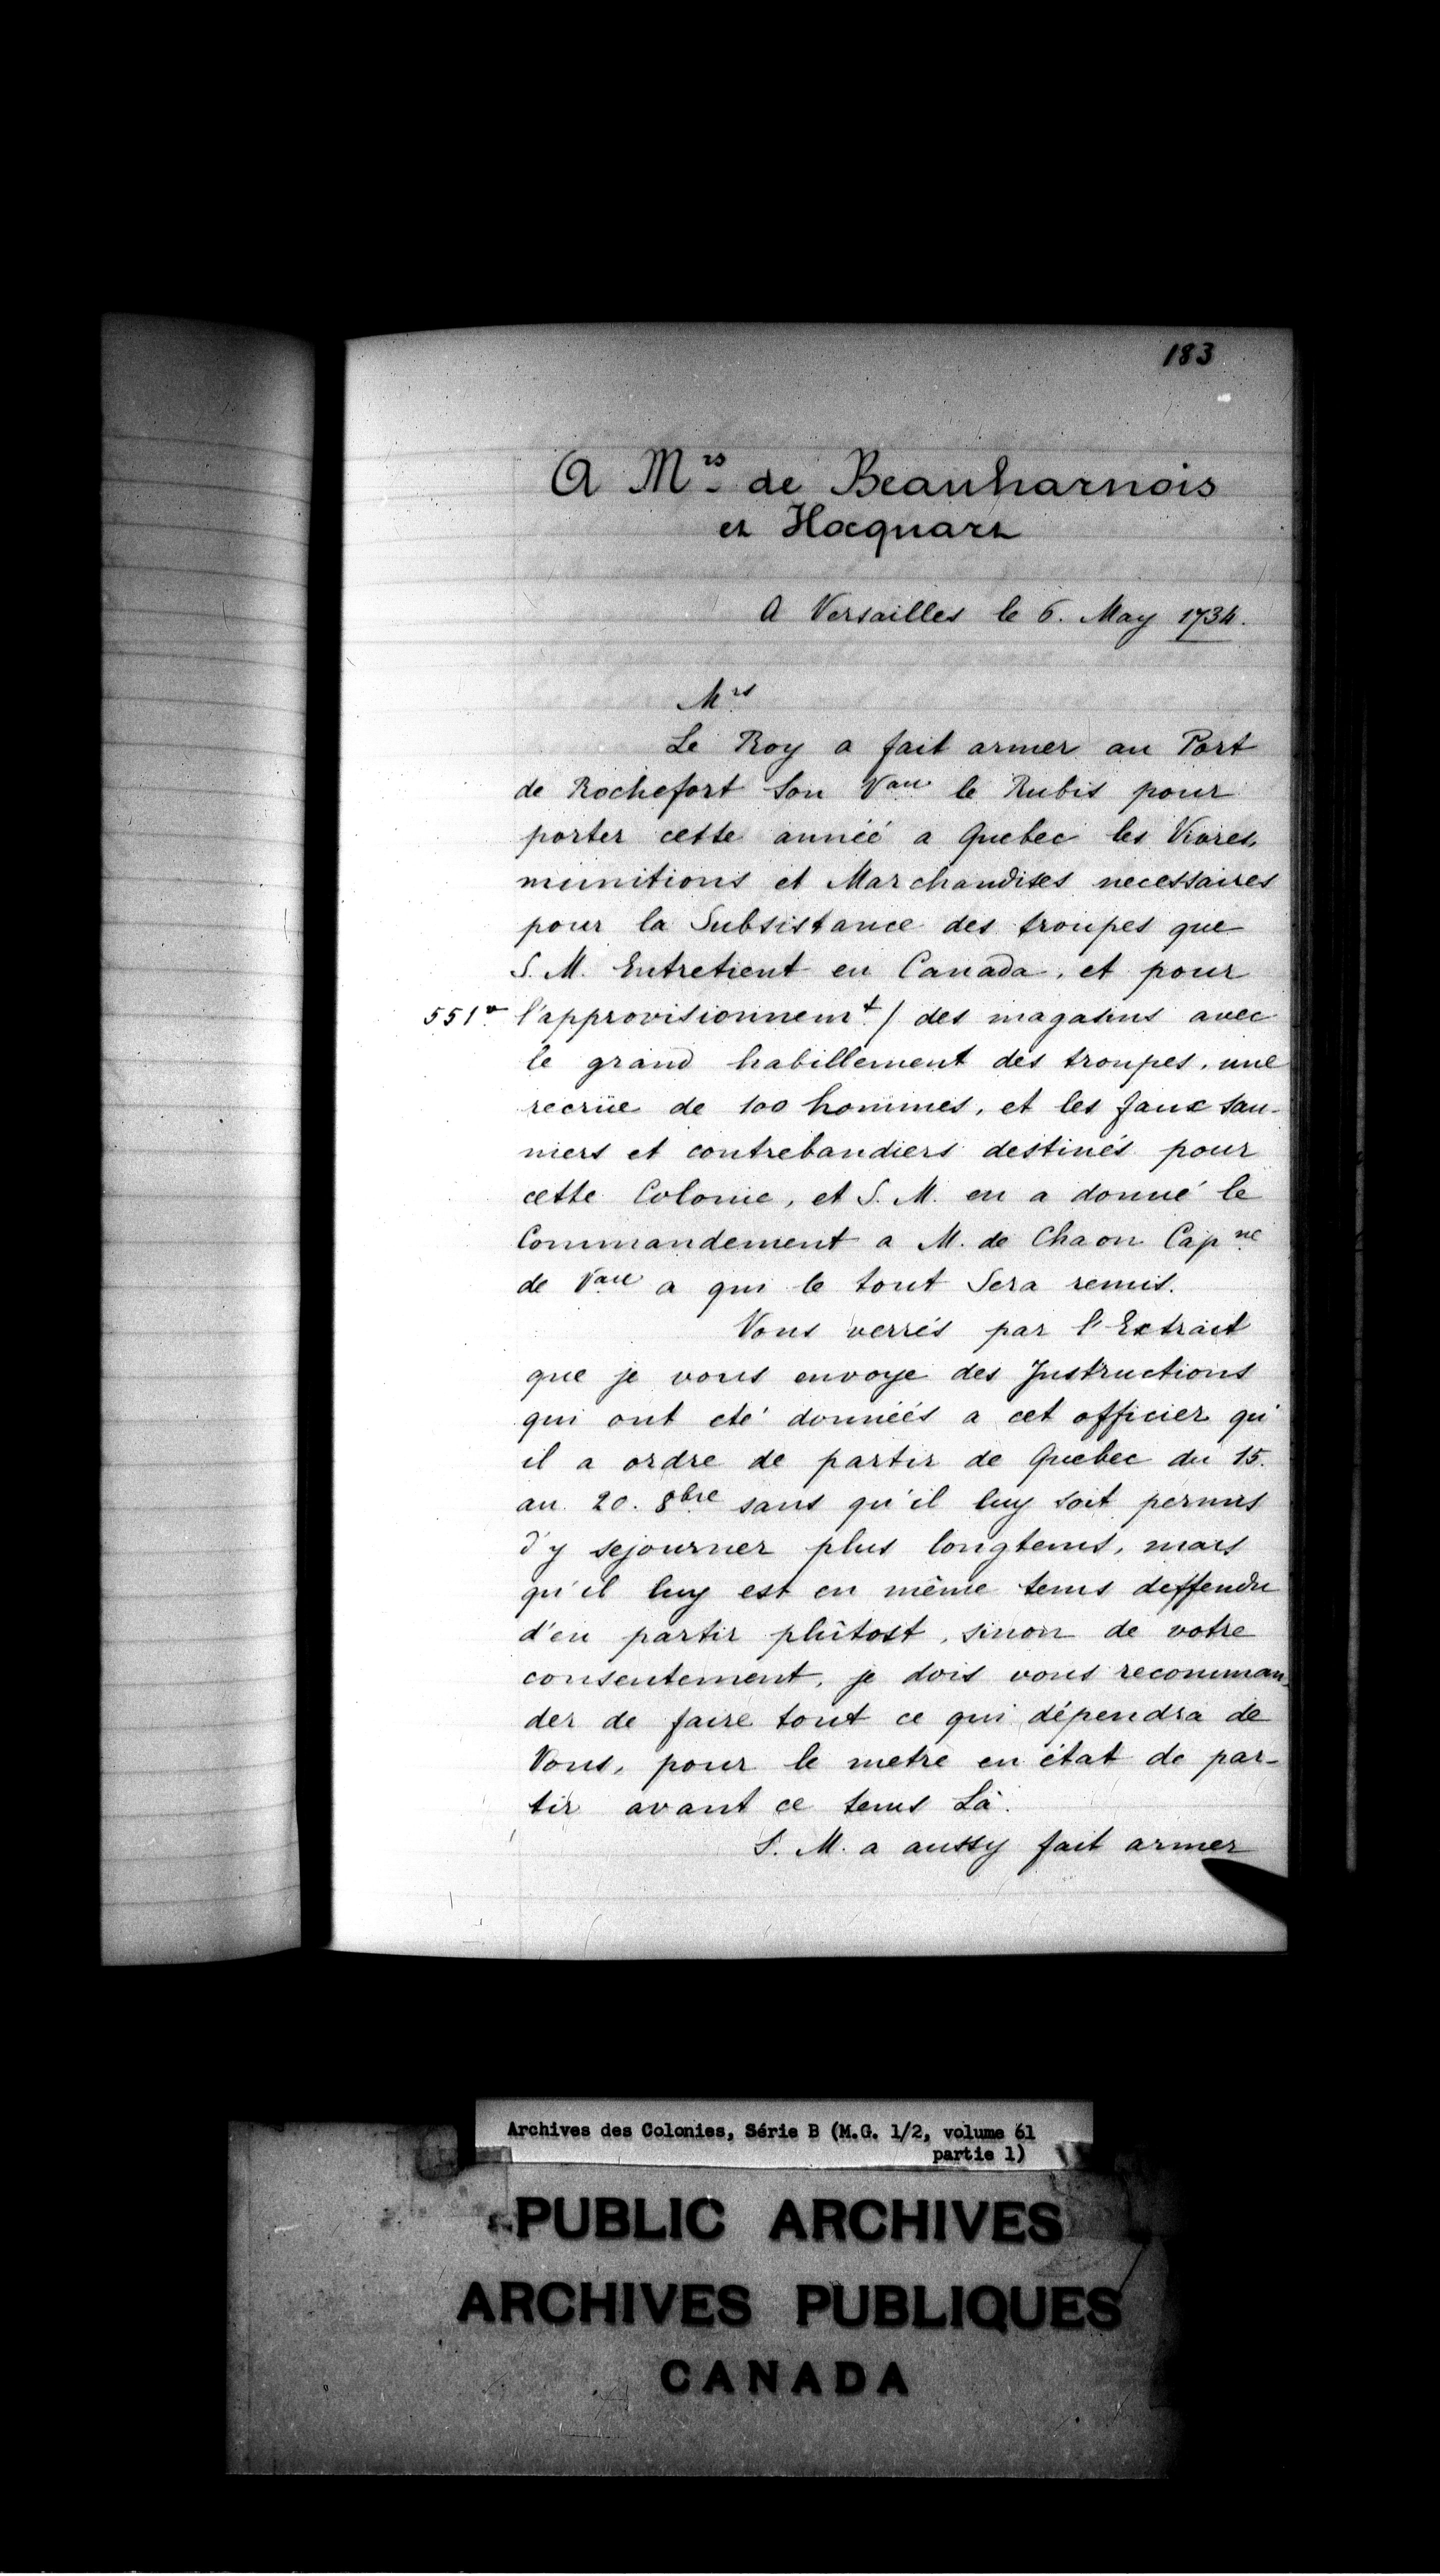 183
A Mrs de Beauharnois
et Hocquart
A Versailles le 6. May 1734.
Mrs
Le Roy a fait armer au Port
de Rochefort Son Vau le Rubis pour
porter cette année a Quebec les Vivres,
munitions et Marchandises necessaires
pour la Subsistance des troupes que
S. M. Entretient en Canada, et pour
551vo l'approvisionnemt / des magasins avec
le grand habillement des troupes, une
recrüe de 100 hommes, et les faux sau-
niers et contrebandiers destinés pour
cette Colonie, et S. M. en a donné le
Commandement a M. de Chaon Capne
de Vau a qui le tout Sera remis.
Vous verrés par l'Extrait
que je vous envoye des Instructions
qui ont eté données a cet officier qu'
il a ordre de partir de Quebec du 15.
au 20. 8bre sans qu'il luy soit permis
d'y sejourner plus longtems, mais
qu'il luy est en même tems deffendu
d'en partir plûtost, sinon de votre
consentement, je dois vous recomman-
der de faire tout ce qui dépendra de
Vous, pour le metre en état de par-
tir avant ce tems Là.
S. M. a aussy fait armer
Archives des Colonies, Série B (M.G. 1/2, volume 61
partie 1)
PUBLIC ARCHIVES
ARCHIVES PUBLIQUES
CANADA